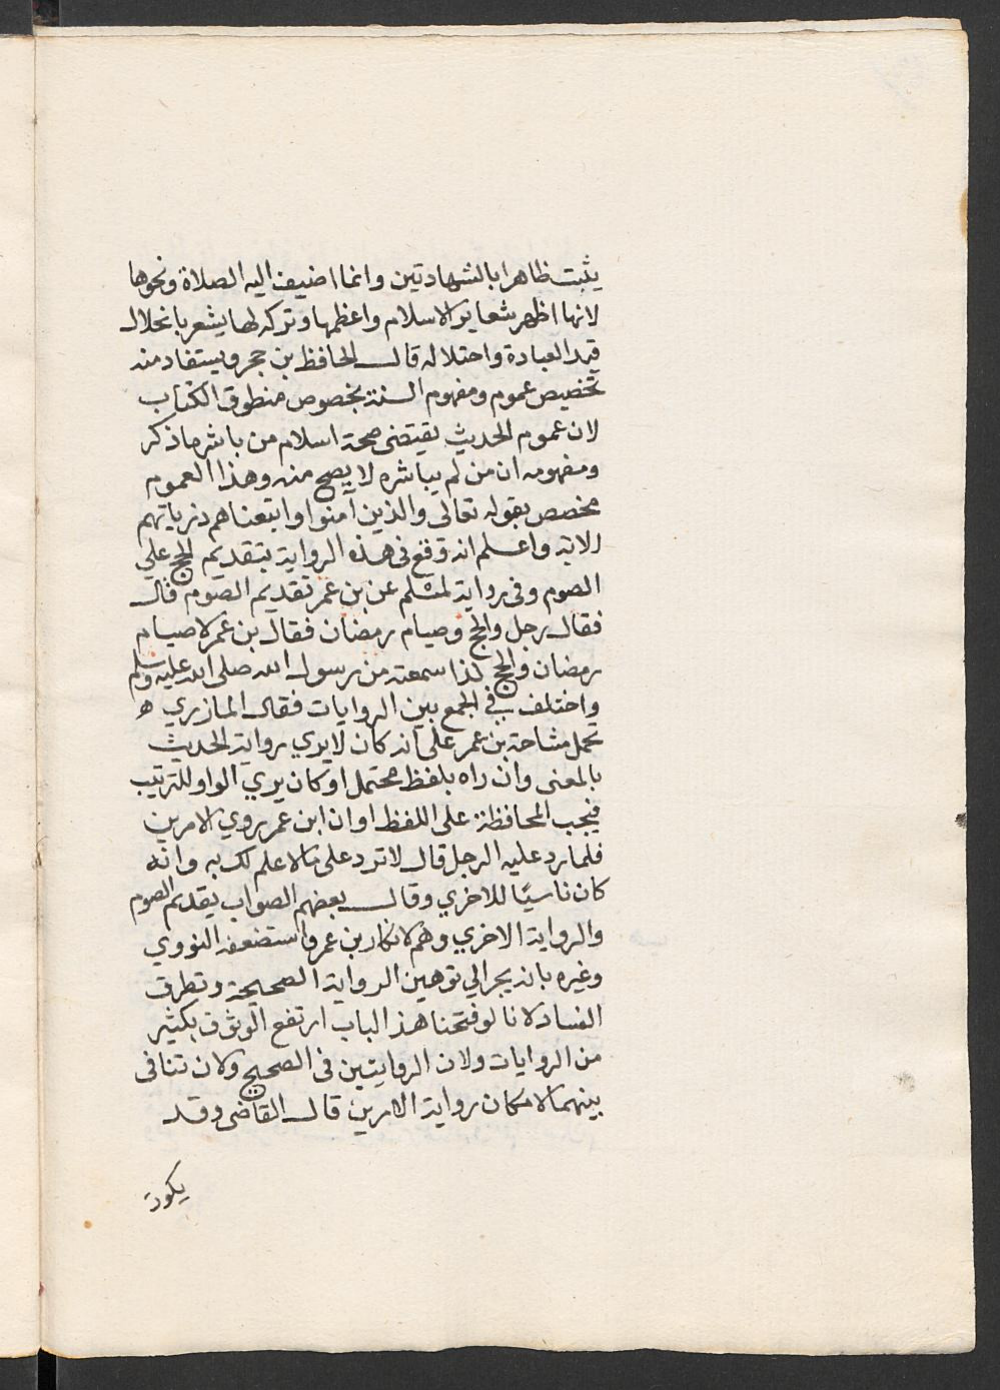 يثبت ظاهرا بالشهادتين وانما اضيف اليه الصلاة ونحوها
لانها اظهر شعاير الاسلام واعظمها وتركه لها يشعر بانحلال
قيد العبادة واختلاله قال الحافظ بن حجر ويستفاد منه
تخصيص عموم ومفهوم السنة بخصوص منطوق الكتاب
لان عموم الحديث يقتضى صحة اسلام من باشر ما ذكر
ومفهومه ان من لم يباشره لا يصح منه وهذا العموم
مخصص بقوله تعالى والذين آمنوا واتبعناهم ذرياتهم
الاية واعلم انه وقع فى هذه الرواية بتقديم الحج على
الصوم وفى رواية لمسلم عن بن عمر تقديم الصوم قال
فقال رجل والحج وصيام رمضان فقال بن عمر لا صيام
رمضان والحج كذا سمعته من رسول الله صلى الله عليه وسلم
واختلف فى الجمع بين الروايات فقال المازري
تحمل مشاحة بن عمر على انه كان لا يري رواية الحديث
بالمعنى وان راه بلفظ محتمل او كان يري الواو للترتيب
فيجب المحافظة على اللفظ او ان ابن عمر روي الامرين
فلما رد عليه الرجل قال لا ترد على مالا علم لك به وانه
كان ناسيا للاخري وقال بعضهم الصواب تقديم الصوم
والرواية الاخري وهم لانكار بن عمر واستضعفه النووي
وغيره بانه يجر الي توهين الرواية الصحيحة وتطرق
الفساد لانا لو فتحنا هذا الباب ارتفع الوثوق بكثير
من الروايات ولان الروايتين فى الصحيح ولا تنافى
بينهما لامكان رواية الامرين قال القاضى وقد
يكون